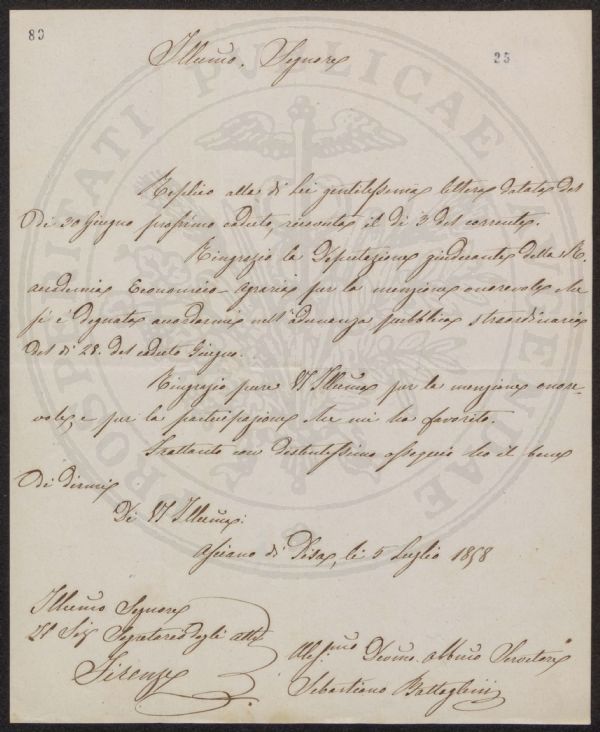 80
25
Illmo. Signore
Replico alla di Lei gentilissima lettera datata del
di 30 Giugno prossimo caduto, ricevuta il di 3 del corrente.
Ringrazio la Deputazione giudicante della R.
accademia Economico-Agraria per la menzione onorevole che
si è degnata accordarmi nell'adunanza pubblica straordinaria
del di 28. del caduto Giugno.
Ringrazio pure VS Illma per la menzione onore-
vole, e per la partecipazione che mi ha favorito.
Trattanto con distintissimo ossequio ho il bene
di dirmi
Di VS Illma:
Asciano di Pisa, li 5 Luglio 1858
Illmo Signore
Il Sig Segretario degli atti
Firenze
Devmo. Obbmo Servitore
Sebastiano Battaglini
PROSPERITATI PUBLICAE AUGENDAE